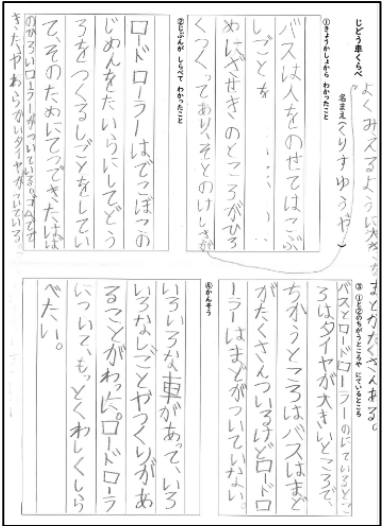 じどう車くらべ
名まえ(くりす ゆうや)
①きょうかしょから わかったこと
バスは人をのせてはこぶ
しごとを
そのた
めにざせきのところがひろ
くつくってあり、そとのけしきが
よくみえるように大きなまどがたくさんある。
②じぶんが しらべて わかったこと
ロードローラーはでこぼこの
じめんをたいらにしてどう
ろをつくるしごとをしてい
て、そのためにてつできたはば
のひろいローラーがついている。ゴムでで
きたやわらかいタイヤがついている。
③①と②のちがうところや にているところ
バスとロードローラーのにているとこ
ろはタイヤが大きいところで、
ちがうところはバスはまど
がたくさんついるけどロードロ
ーラーはまどがついていない。
④かんそう
いろいろな車があって、いろ
いろなしごとやつくりがあ
ることがわった。ロードローラ
について、もっとくわしくしら
べたい。